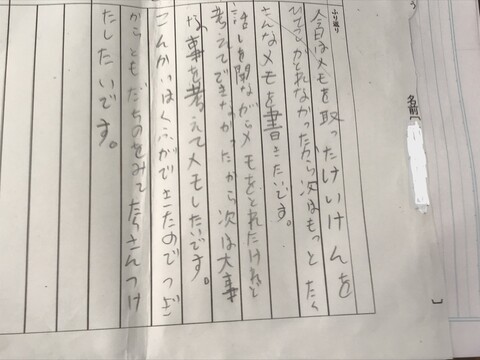 名前
ふり返り
今日はメモを取ったけいけんを
ひとつしかとれなかったから次はもっとたく
さんなメモを書きたいです。
話しを聞ながらメモをとれたけれど
考えてできなかったから次は大事
な事を考えてメモしたいです。
こんかいはくふができたのでつぎ
からともだちのをみてたくさんつけ
たしたいです。